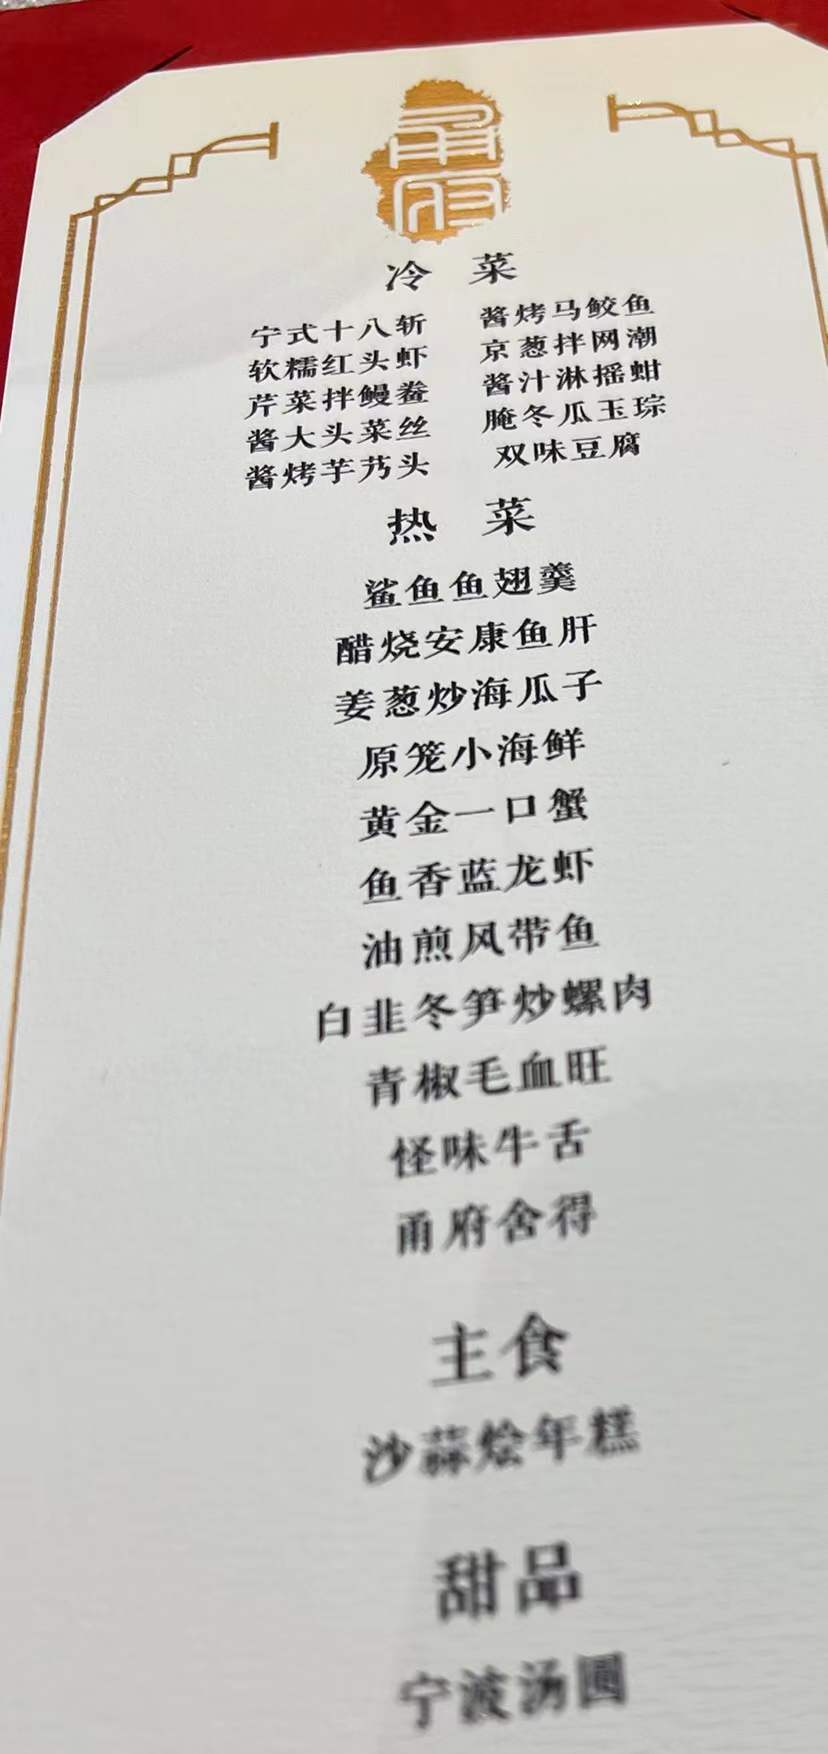 甬府
冷菜
宁式十八斩
软糯红头虾
芹菜拌鳗鲞
酱大头菜丝
酱烤芋艿头
酱烤马鲛鱼
京葱拌网潮
酱汁淋摇蚶
腌冬瓜玉琮
双味豆腐
热菜
鲨鱼鱼翅羹
醋烧安康鱼肝
姜葱炒海瓜子
原笼小海鲜
黄金一口蟹
鱼香蓝龙虾
油煎风带鱼
白韭冬笋炒螺肉
青椒毛血旺
怪味牛舌
甬府舍得
主食
沙蒜烩年糕
甜品
宁波汤圆